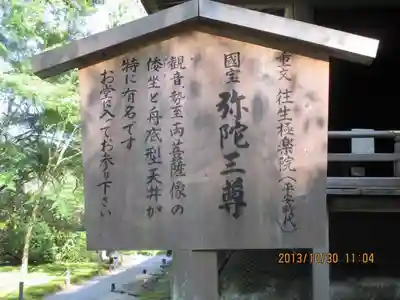 重文 往生極楽院(平安時代)
國宝 弥陀三尊
観音勢至両菩薩像の
倭坐と舟底型天井が
特に有名です
お堂に入ってお参り下さい
2013/10/30 11:04